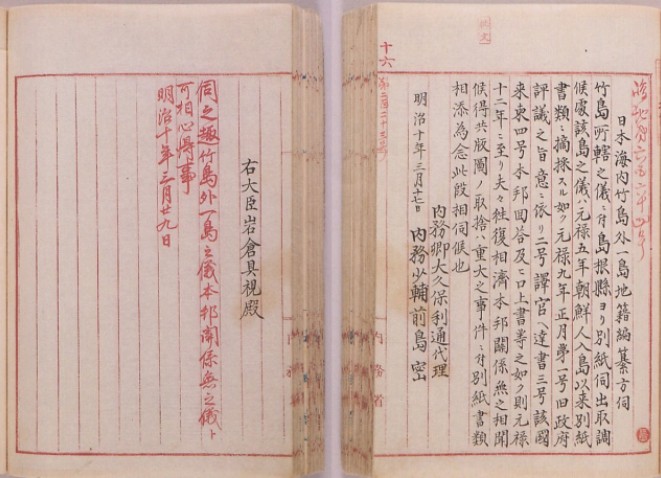 日本海内竹島外一島地籍編纂方伺
竹島所轄之儀ニ付島根縣ヨリ別紙伺出取調
候處該島之儀ハ元禄五年朝鮮人入島以来別紙
書類ニ摘採スル如ク元禄九年正月第一号旧政府
評議之旨意ニ依リ二号譯官ヘ達書三号該國
来柬四号本邦回答及ヒ口上書等之如ク則元禄
十二年ニ至リ夫々往復相濟本邦関係無之相聞
候得共版圖ノ取捨ハ重大之事件ニ付別紙書類
相添為念此段相伺候也
明治十年三月十七日
内務卿大久保利通代理
内務少輔前島密
十六
内務省
右大臣岩倉具視殿
伺之趣竹島外一島之儀本邦関係無之儀ト
可相心得事
明治十年三月廿九日